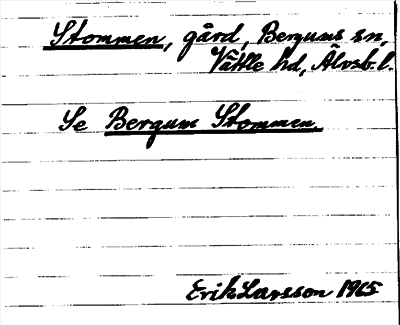 Stommen, gård, Bergums sn,
Vättle hd, Älvsb. l.
Se Bergums Stommen.
Erik Larsson 1965